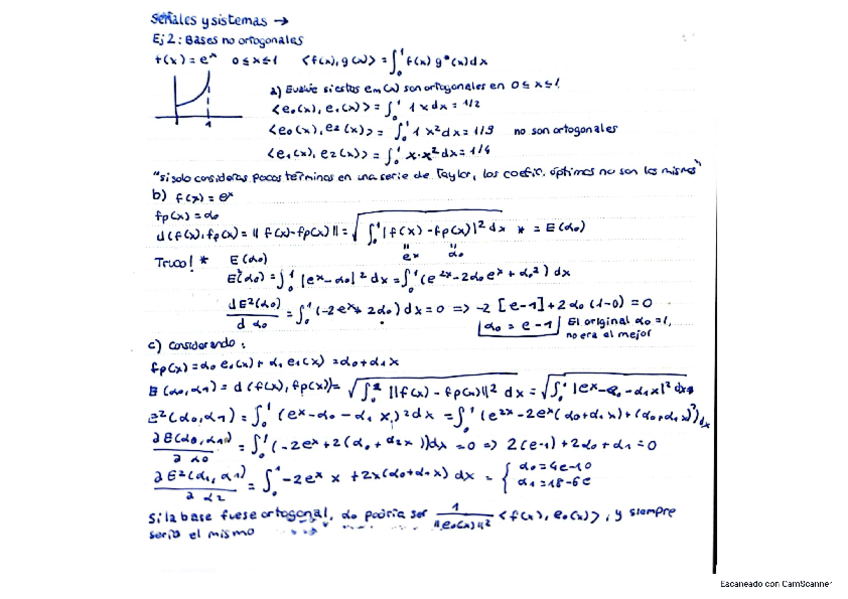 Señales y sistemas →
Ej 2: Bases no ortogonales
f(x) = eˣ 0 ≤ x ≤ 1 <f(x), g(x)> = ∫₀¹ f(x) g*(x) dx
1
a) Evalúe si estas em(x) son ortogonales en 0 ≤ x ≤ 1
<e₀(x), e₁(x)> = ∫₀¹ 1 x dx = 1/2
<e₀(x), e₂(x)> = ∫₀¹ 1 x² dx = 1/3 no son ortogonales
<e₁(x), e₂(x)> = ∫₀¹ x·x² dx = 1/4
"si solo consideras pocos términos en una serie de Taylor, los coefic. óptimos no son los mismos"
b) f(x) = eˣ
fp(x) = α₀
d(f(x), fp(x)) = || f(x) - fp(x) || = √∫₀¹ |f(x) - fp(x)|² dx * = E(α₀)
" "
eˣ α₀
Truco! * E(α₀)
E²(α₀) = ∫₀¹ |eˣ - α₀|² dx = ∫₀¹ (e²ˣ - 2α₀eˣ + α₀²) dx
dE²(α₀) / d α₀ = ∫₀¹ (-2eˣ + 2α₀) dx = 0 => -2 [e-1] + 2α₀ (1-0) = 0
α₀ = e - 1 El original α₀ = 1,
no era el mejor
c) Considerando:
fp(x) = α₀ e₀(x) + α₁ e₁(x) = α₀ + α₁x
E(α₀, α₁) = d(f(x), fp(x)) = √∫₀¹ ||f(x) - fp(x)||² dx = √∫₀¹ |eˣ - α₀ - α₁x|² dx
e²(α₀, α₁) = ∫₀¹ (eˣ - α₀ - α₁ x)² dx = ∫₀¹ (e²ˣ - 2eˣ (α₀ + α₁x) + (α₀ + α₁x)²) dx
∂E(α₀, α₁) / ∂ α₀ = ∫₀¹ (-2eˣ + 2(α₀ + α₂x)) dx = 0 => 2(e-1) + 2α₀ + α₁ = 0
∂E²(α₁, α₁) / ∂ α₂ = ∫₀¹ -2eˣ x + 2x(α₀ + α₁x) dx = { α₀ = 4e - 10
α₁ = 18 - 6e
Si la base fuese ortogonal, α₀ podría ser 1 / ||e₀(x)||² <f(x), e₀(x)>, y siempre
sería el mismo
Escaneado con CamScanner